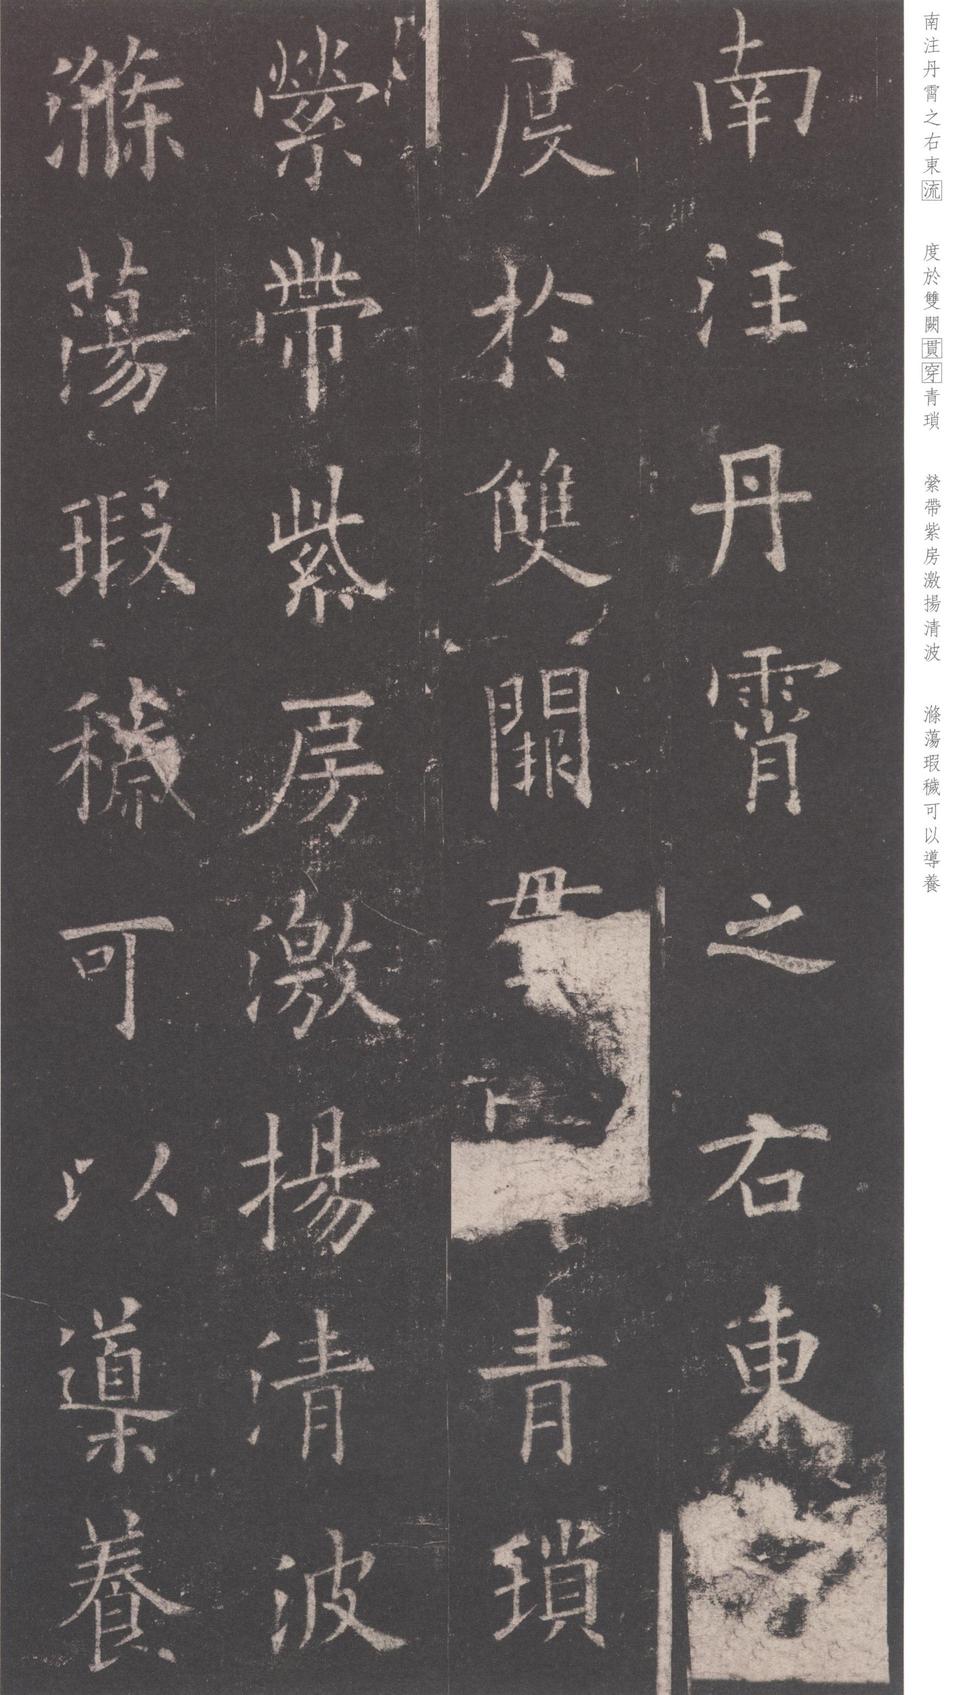 南注丹霄之右東流　度於雙闕貫穿青瑣　縈帶紫房激揚清波　滌蕩瑕穢可以導養
南注丹霄之右東
度於雙闕貫青瑣
縈帶紫房激揚清波
滌蕩瑕穢可以導養